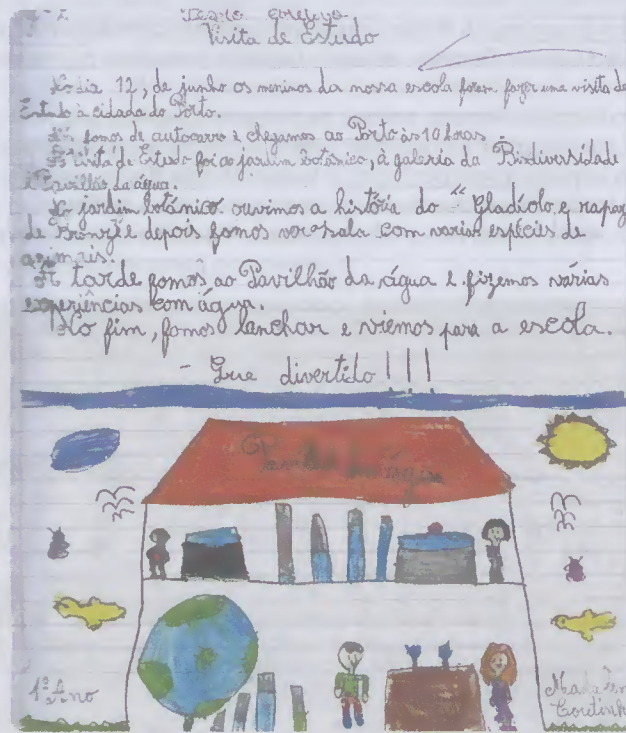 Visita de Estudo
No dia 12, de junho os meninos da nossa escola foram fazer uma visita de
Estudo à cidade do Porto.
Nós fomos de autocarro e chegamos ao Porto às 10 horas
visita de Estudo foi ao jardim botânico, à galeria da Biodiversidade
Pavilhão da água.
No jardim botânico ouvimos a história do "Gladíolo e rapaz
de Bronze e depois fomos ver sala com varias espécies de
animais.
À tarde fomos ao Pavilhão da água e fizemos várias
experiências com água.
No fim, fomos lanchar e viemos para a escola.
- Que divertido!!!
1º Ano
Coutinho